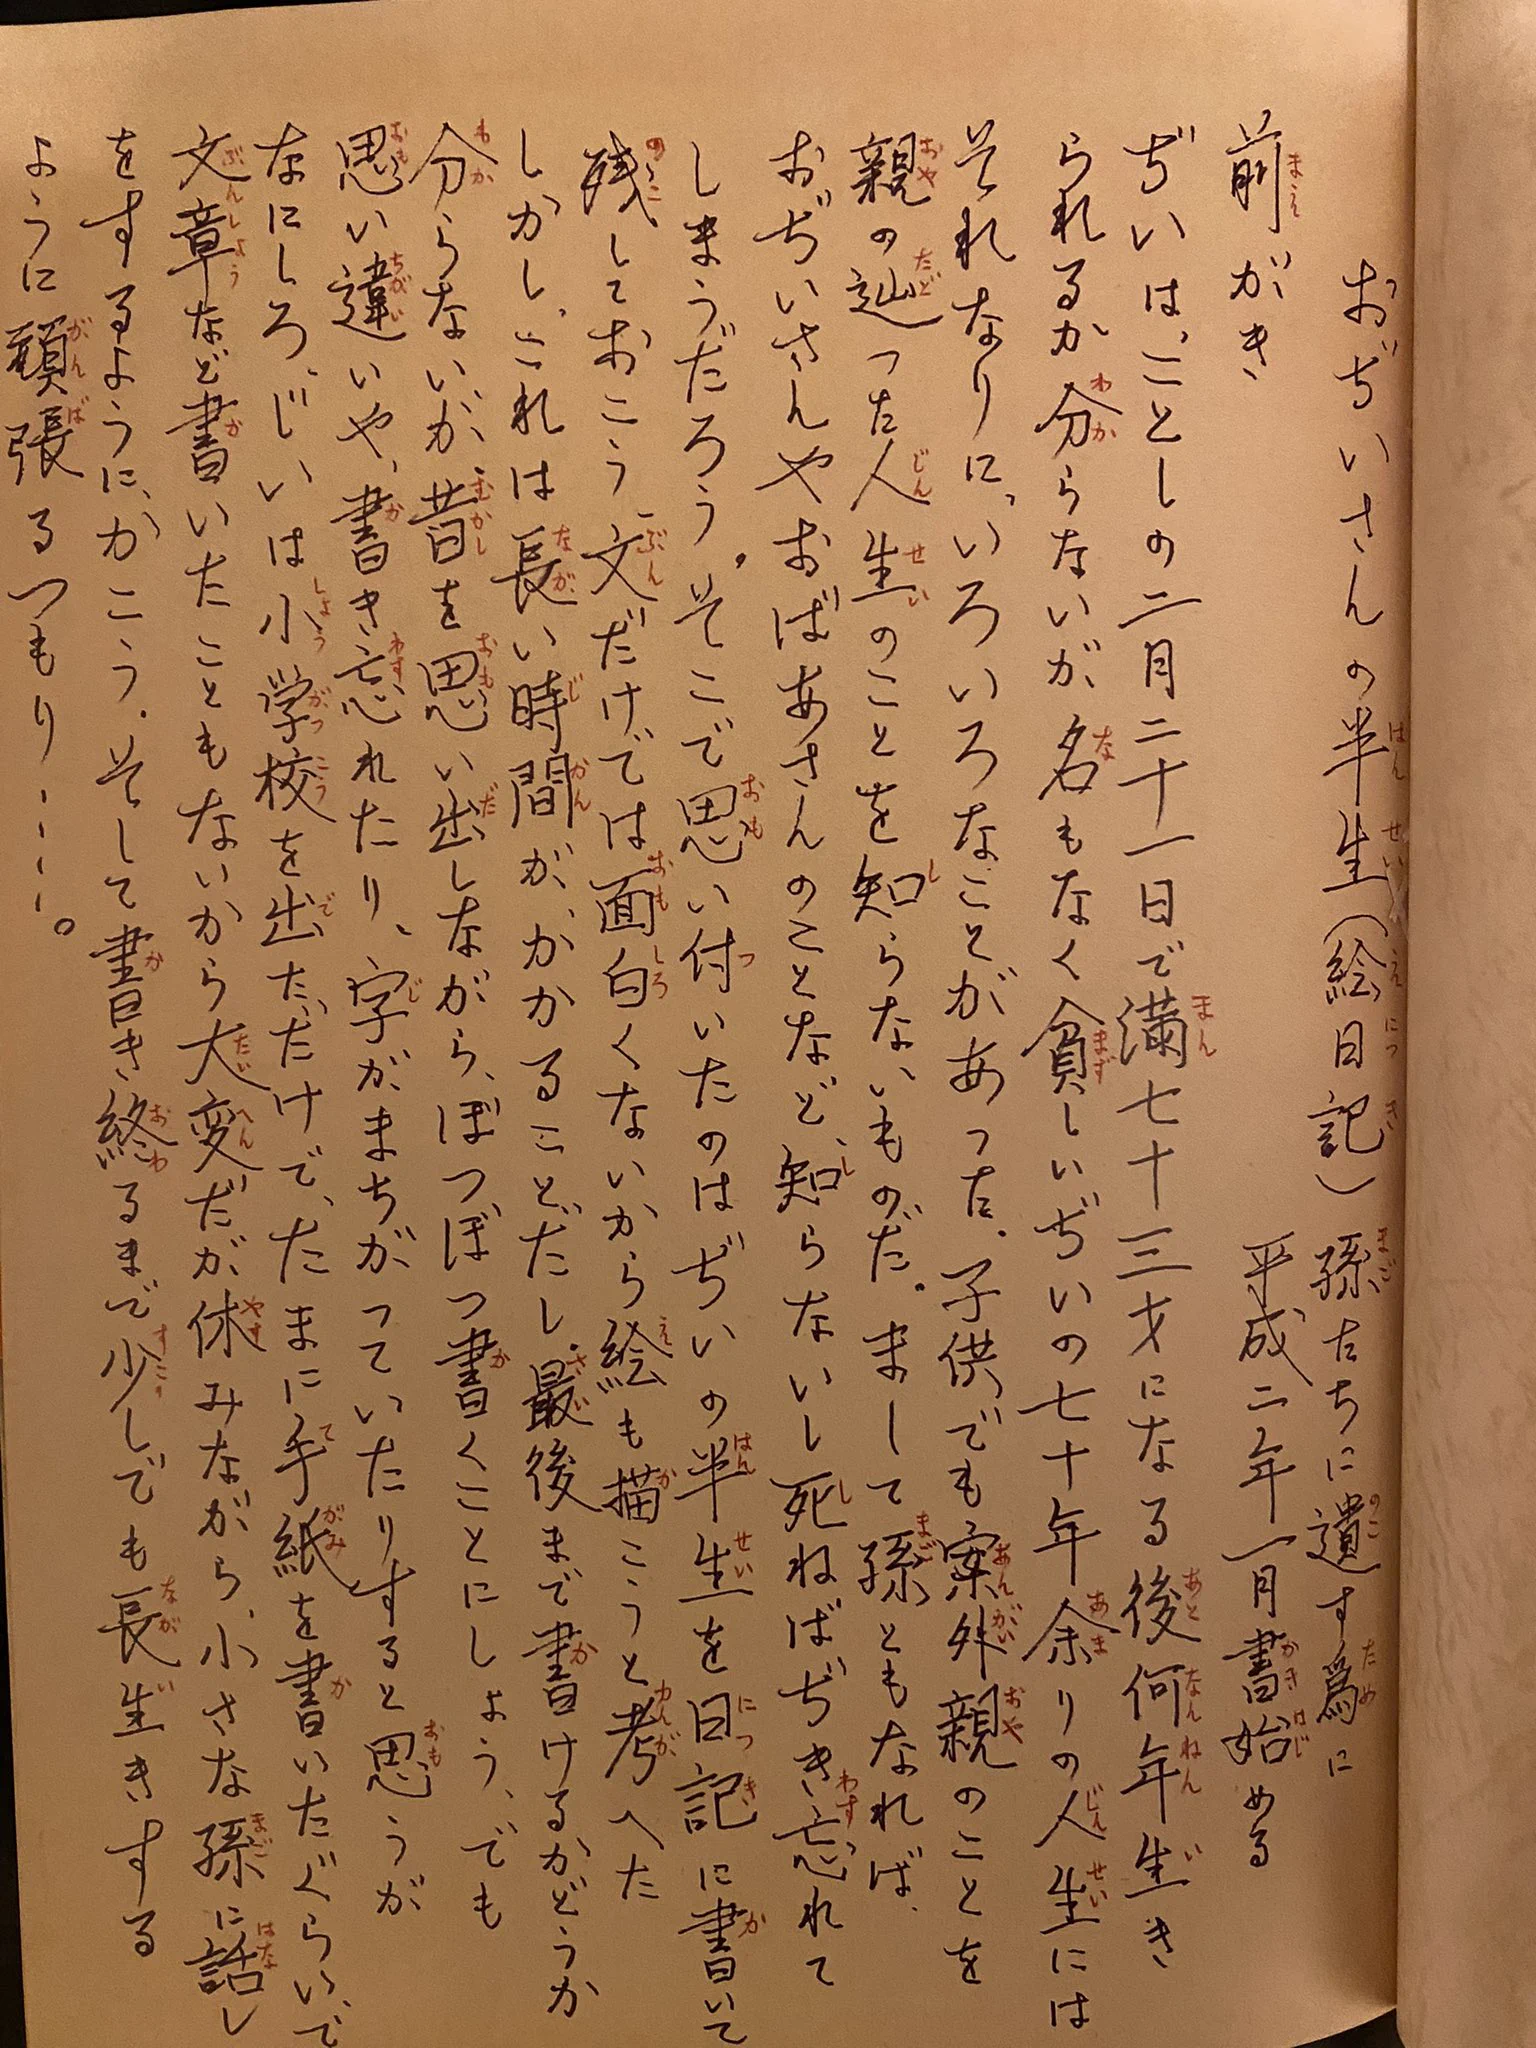 おぢいさんの半生(絵日記)孫たちに遺す為に
平成二年一月書始める
前がき
ぢいは、ことしの二月二十一日で満七十三才になる後何年生き
られるか分らないが名もなく貧しいぢいの七十年余りの人生には
それなりに、いろいろなことがあった。子供でも案外親のことを
親の辿った人生のことを知らないものだ。まして孫ともなれば、
おぢいさんやおばあさんのことなど、知らないし死ねばぢき忘れて
しまうだろう。そこで思い付いたのはぢいの半生を日記に書いて
残しておこう、文だけでは面白くないから絵も描こうと考へた
しかし、これは長い時間が、かかることだし、最後まで書けるかどうか
分らないが、昔を思い出しながら、ぼつぼつ書くことにしょう、でも
思い違いや、書き忘れたり、字がまちがっていたりすると思うが
なにしろ、じいは小学校を出た、だけで、たまに手紙を書いたぐらい、で
文章など書いたこともないから大変だが休みながら、小さな孫に話し
をするように、かこう。そして書き終るまで少しでも長生きする
ように頑張るつもり……。